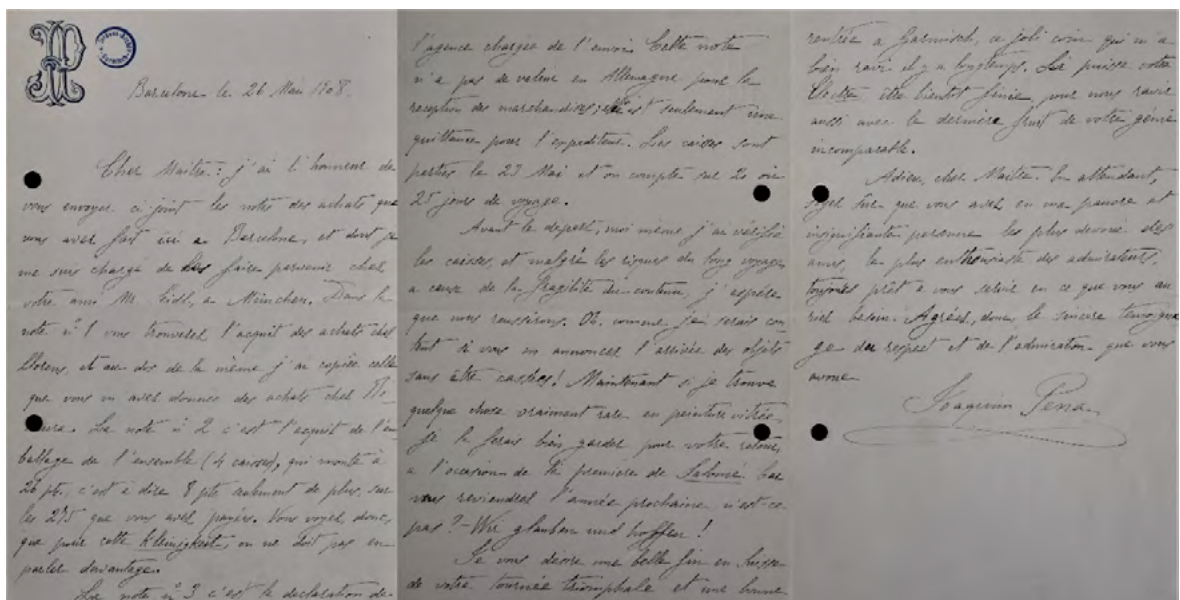 Barcelone le 26 Mai 1908.
Cher Maître: j'ai l'honneur de
vous envoyer ci joint les notes des achats que
vous avez fait ici a Barcelone, et dont je
me suis chargé de les faire parvenir chez
votre ami Mr. Eidl, a München. Dans la
note nº 1 vous trouverez l'acquit des achats chez
Llorens, et au dos de la même j'ai copiée celle
que vous m'avez donnée des achats chez
La note nº 2 c'est l'acquit de l'em
ballage de l'ensemble (4 caisses), qui monte à
pts, c'est à dire 8 pts seulement de plus, sur
les 275 que vous avez payées. Vous voyez, donc,
que pour cette Kleinigkeit, on ne doit pas en
parler davantage.
La note nº 3 c'est la declaration de
l'agence chargée de l'envoi. Cette note
n'a pas de valeur en Allemagne pour la
reception des marchandises; elle est seulement une
quittance pour l'expediteur. Les caisses sont
parties le 23 Mai et on compte sur 20 ou
25 jours de voyage.
Avant le départ, moi même j'ai vérifié
les caisses, et malgré les risques du long voyage
a cause de la fragilité du contenu, j'espère
que nous reussirons. Oh, comme je serais con
tent si vous m'annoncez l'arrivée des objets
sans être cassés! Maintenant si je trouve
quelque chose vraiment rare en peinture vitrée,
je le ferais bien garder pour votre retour,
a l'occasion de la première de Salomé. Car
vous reviendrez l'année prochaine n'est-ce
pas? - Wir glauben und hoffen!
Je vous désire une belle fin en Suisse
de votre tournée triomphale et une bonne
rentrée a Garmisch, ce joli coin qui m'a
bien ravi il y a longtemps. puisse votre
Elektra être bientôt finie pour nous ravir
aussi avec le dernière fruit de votre génie
incomparable.
Adieu, cher Maître. En attendant,
soyez sûr que vous avez en ma pauvre et
insignifiante personne le plus devoué des
amis, le plus enthousiaste des admirateurs,
toujours prêt a vous servir en ce que vous au
riez besoin. Agréez, donc, le sincère temoigna
ge du respect et de l'admiration que vous
avoue
Joaquim Pena